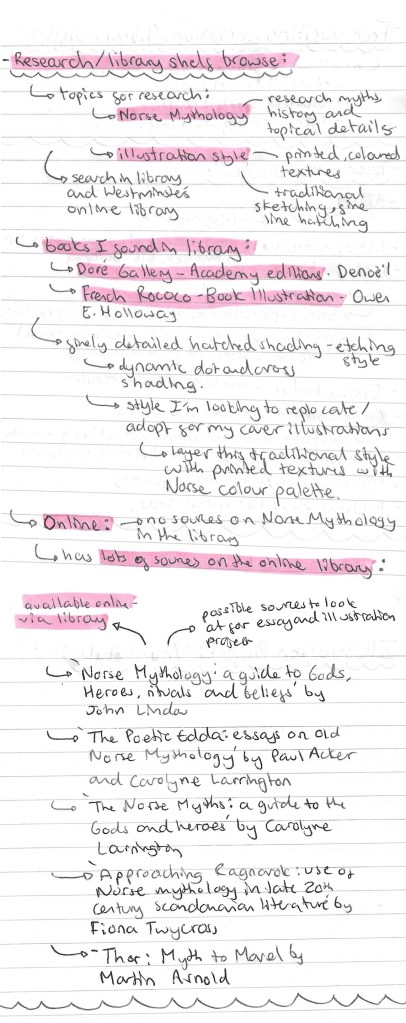 - Research/library shelf browse:
↳ topics for research:
↳ Norse Mythology - research myths, history and topical details
↳ illustration style - printed, coloured textures
traditional sketching, fine line hatching
↳ search in library and Westminster's online library
↳ books I found in library:
↳ Doré Gallery - Academy editions. Denoël
↳ French Rococo - Book Illustration - Owen
E. Holloway
↳ finely detailed hatched shading - etching style
↳ dynamic dot and cross
shading.
↳ style I'm looking to replocate/
adopt for my cover illustrations
↳ layer this traditional style
with printed textures with
Norse colour palette.
↳ Online: - no sources on Norse Mythology
in the library
↳ has lots of sources on the online library:
available online -
via library
possible sources to look
at for essay and illustration
project
↳ 'Norse Mythology: a guide to Gods,
Heroes, rituals and beliefs' by
John Lindow
↳ 'The Poetic Edda: essays on old
Norse Mythology' by Paul Acker
and Carolyne Larrington
↳ 'The Norse Myths: a guide to the
Gods and heroes' by Carolyne
Larrington
↳ 'Approaching Ragnarok: use of
Norse mythology in late 20th
century scandanavian literature' by
Fiona Twycross
↳ - Thor: Myth to Marvel by
Martin Arnold